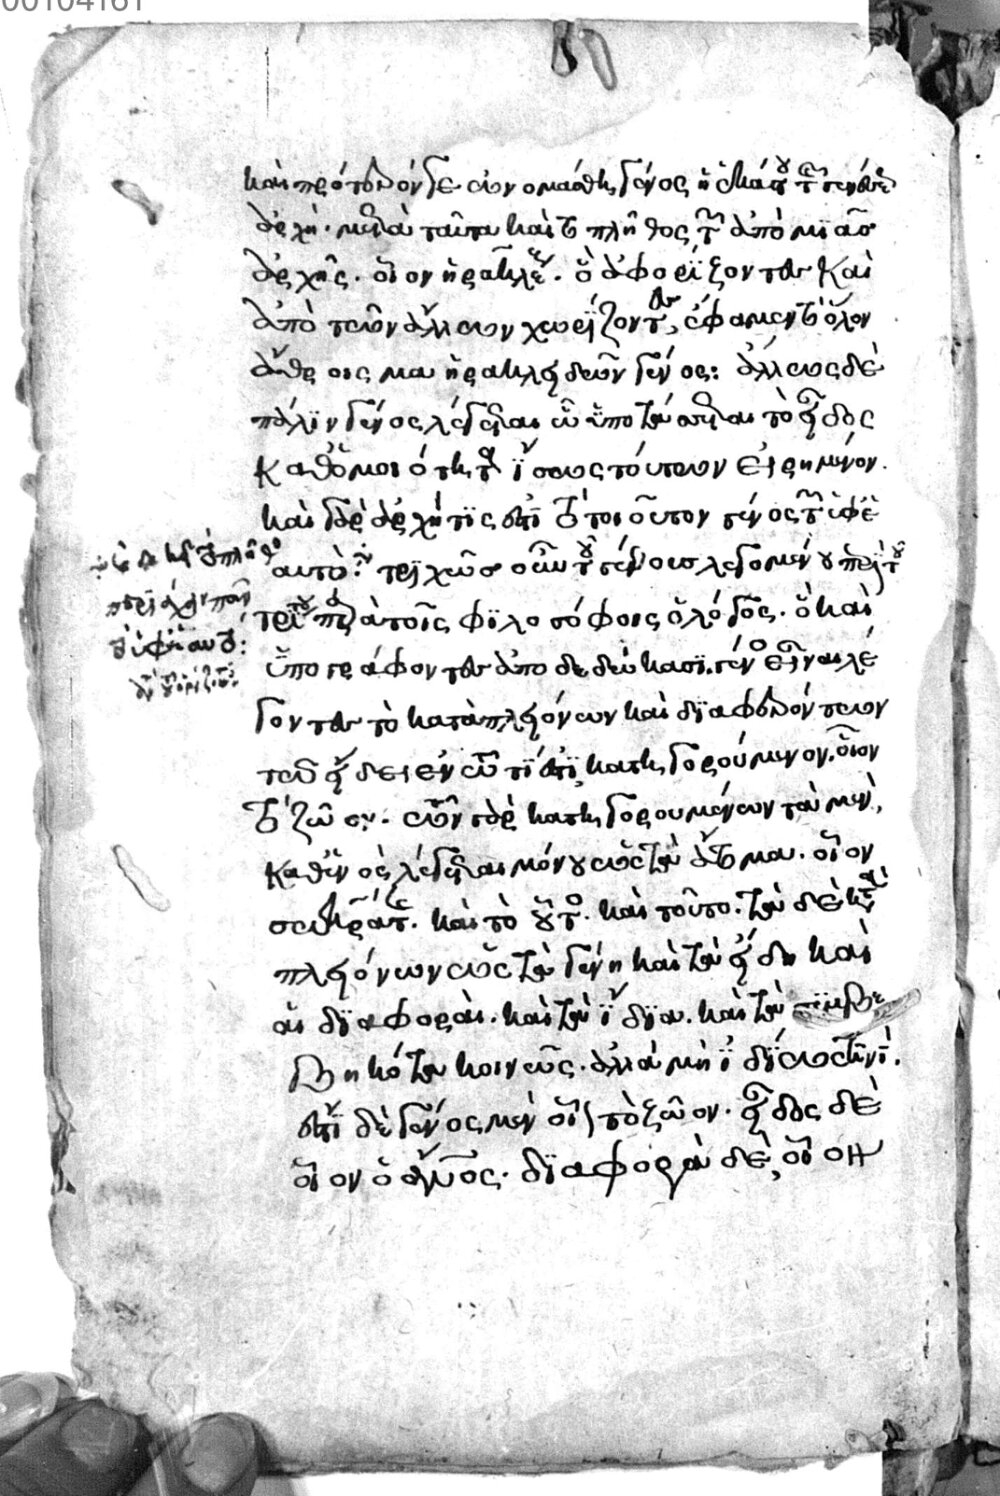 00104161
καὶ πρότερόν γε ὠνομάσθη γένος ἡ ἑκάστου τῆς γενέσεως
ἀρχή. μετὰ ταῦτα καὶ τὸ πλῆθος τῶν ἀπὸ μιᾶς
ἀρχῆς. οἷον ἡρακλέους. ὃ ἀφορίζοντες καὶ
ἀπὸ τῶν ἄλλων χωρίζοντες, ἔφαμεν τὸ ὅλον
ἄθροισμα ἡρακλειδῶν γένος: ἄλλως δὲ
πάλιν γένος λέγεται ὧ ὑποτάσσεται τὸ εἶδος
καθ' ὁμοιότητα ἴσως τούτων εἰρημένον.
καὶ γὰρ ἀρχή τις ἐστὶ τὸ τοιοῦτον γένος τῶν ὑφ' ἑ
αυτό. τριχῶς οὖν τοῦ γένους λεγομένου περὶ τοῦ
τρίτου παρὰ τοῖς φιλοσόφοις ὁ λόγος. ὃ καὶ
ὑπογράφοντες ἀποδεδώκασι. γένος εἶναι λέ
γοντες τὸ κατὰ πλειόνων καὶ διαφερόντων
τῶ εἴδει ἐν τῶ τί ἐστι κατηγορούμενον. οἷον
τὸ ζῶον. τῶν γὰρ κατηγορουμένων τὰ μὲν
καθ' ἑνὸς λέγεται μόνου ὡς τὰ ἄτομα. οἷον
σωκράτης. καὶ τὸ οὗτος. καὶ τοῦτο. τὰ δὲ κατὰ
πλειόνων ὡς τὰ γένη καὶ τὰ εἴδη καὶ
αἱ διαφοραὶ. καὶ τὰ ἴδια. καὶ τὰ συμβε
βηκότα κοινῶς. ἀλλὰ μὴ ἰδίως τινί.
ἔστι δὲ γένος μὲν οἷον τὸ ζῶον. εἶδος δὲ
οἷον ὁ ἄνθρωπος. διαφορὰ δὲ, οἷον